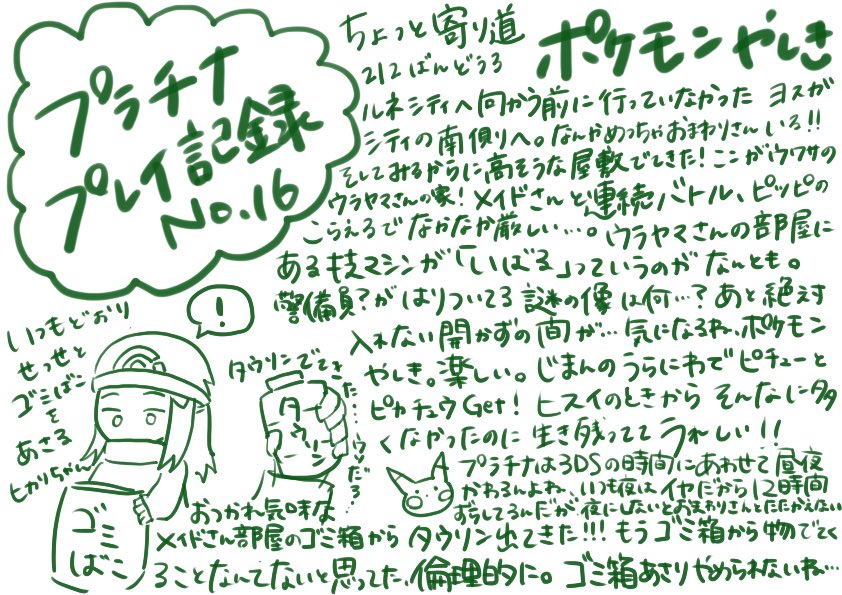 プラチナ
プレイ記録
No.16
ちょっと寄り道
212ばんどうろ
ポケモンやしき
ルネシティへ向かう前に行っていなかった ヨスガ
シティの南側りへ。なんかめっちゃおまわりさんいる!!
そしてみるからに高そうな屋敷でてきた!ここがウワサの
ウラヤマさんの家!メイドさんと連続バトル、ピッピの
こらえるでなかなか厳しい…。ウラヤマさんの部屋に
ある技マシンが「いばる」っていうのがなんとも。
警備員?がはりついてる謎の像は何…?あと絶対
入れない開かずの間が…気になるね、ポケモン
やしき。楽しい。じまんのうらにわでピチューと
ピカチュウGet!ヒスイのときからそんなに多
くなかったのに生き残っててうれしい!!
プラチナは3DSの時間にあわせて昼夜
かわるんよね、いつも夜はイヤだから12時間
ずらしてるんだが、夜にしないとおまわりさんとたたかえない
いつもどおり
せっせと
ゴミばこ
を
あさる
ヒカリちゃん
!
ゴミ
ばこ
タウリンでてき
た…ウソだろ…
タウリン
おつかれ気味な
メイドさん部屋のゴミ箱から タウリン出てきた!!!もうゴミ箱から物でてく
ることなんてないと思ってた、倫理的に。ゴミ箱あさりやめられないね…